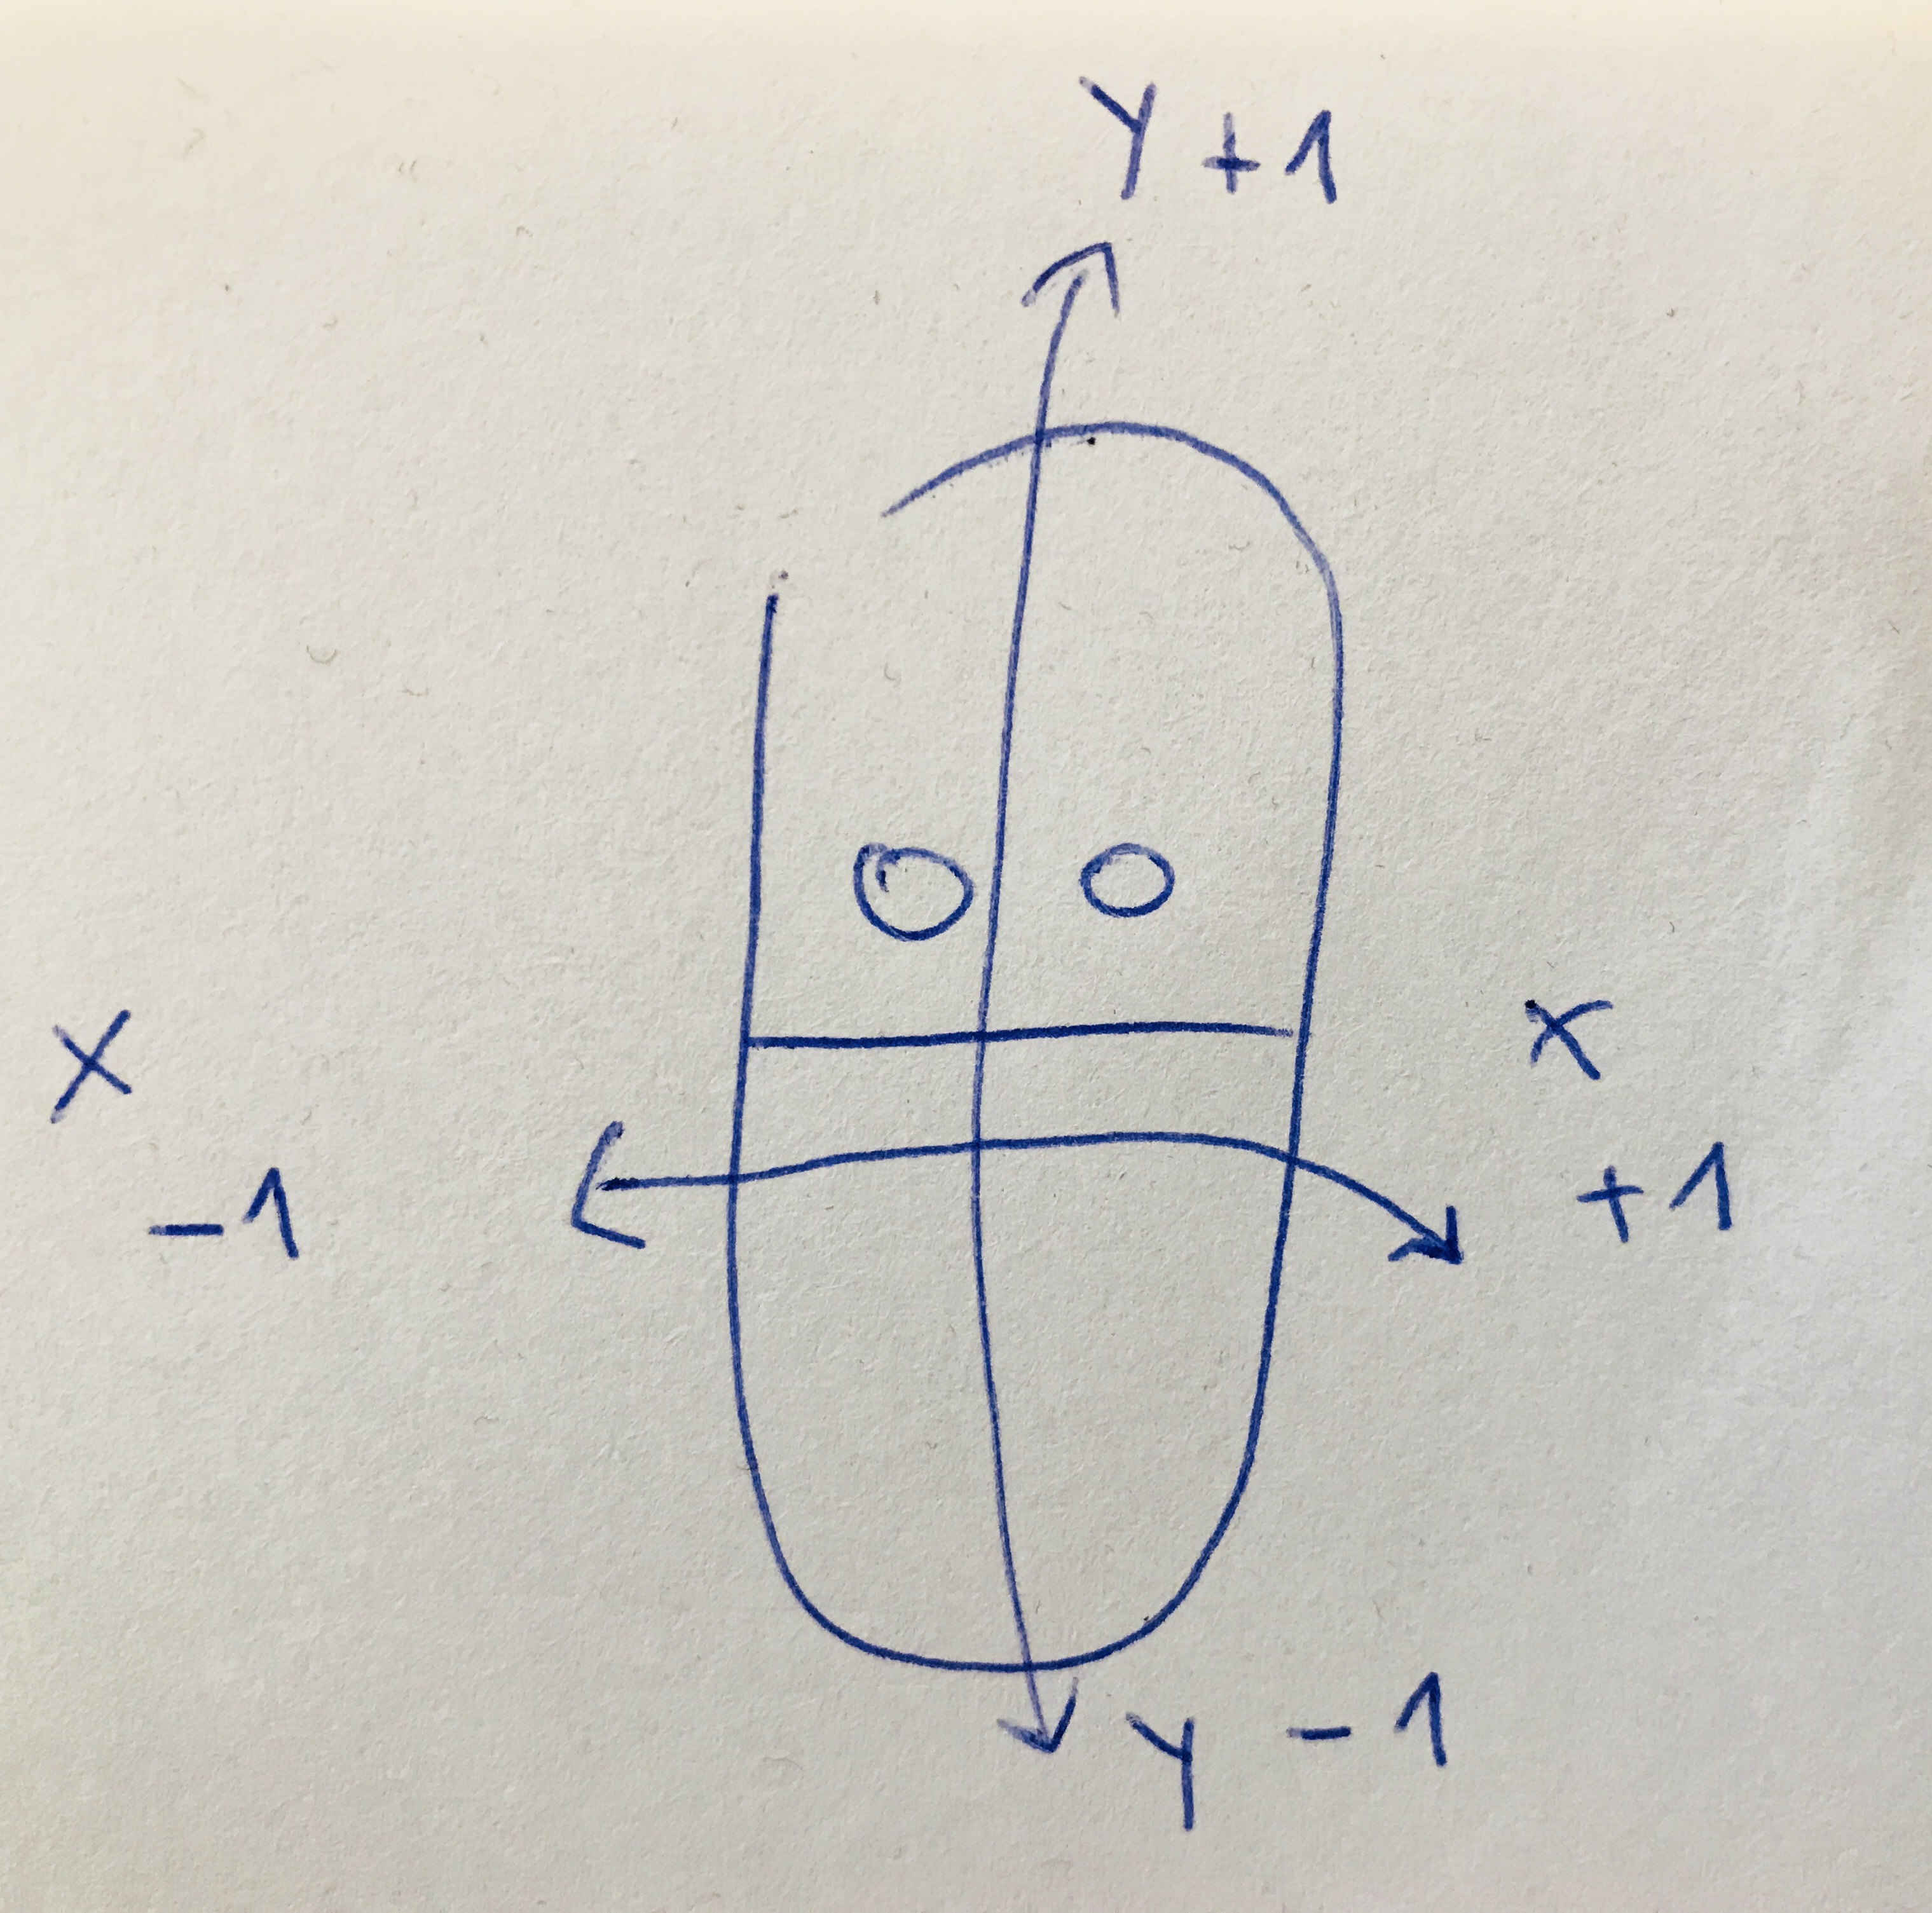 Y +1
X
-1
X
+1
Y -1